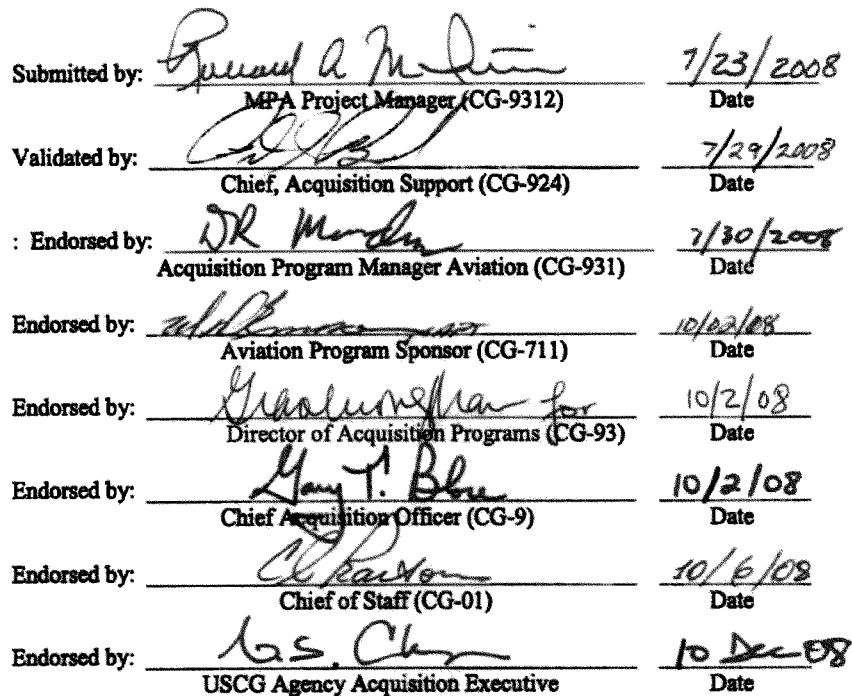 Submitted by: 7/23/2008
MPA Project Manager (CG-9312) Date
Validated by: 7/29/2008
Chief, Acquisition Support (CG-924) Date
: Endorsed by: DR 7/30/2008
Acquisition Program Manager Aviation (CG-931) Date
Endorsed by: 10/02/08
Aviation Program Sponsor (CG-711) Date
Endorsed by: for 10/2/08
Director of Acquisition Programs (CG-93) Date
Endorsed by: Gary T. Blore 10/2/08
Chief Acquisition Officer (CG-9) Date
Endorsed by: 10/6/08
Chief of Staff (CG-01) Date
Endorsed by: 10 Dec 08
USCG Agency Acquisition Executive Date